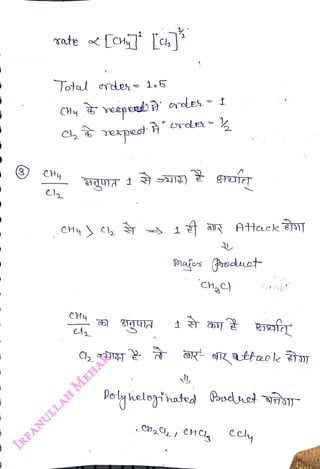 rate ∝ [CH4]^1 [Cl2]^1/2
Total order = 1.5
CH4 के respect में order = 1
Cl2 के respect में order = 1/2
③ CH4/Cl2 अनुपात 1 से ज्यादा है अर्थात्
CH4 > Cl2 से ⇒ 1 ही बार Attack होगा
⇓
Major Product
CH3Cl
CH4/Cl2 का अनुपात 1 से कम है अर्थात्
Cl2 ज्यादा है तो बार-बार attack होगा
⇓
Polyheloginated Product बनेगा
CH2Cl2, CHCl3 CCl4
IRFANULLAH